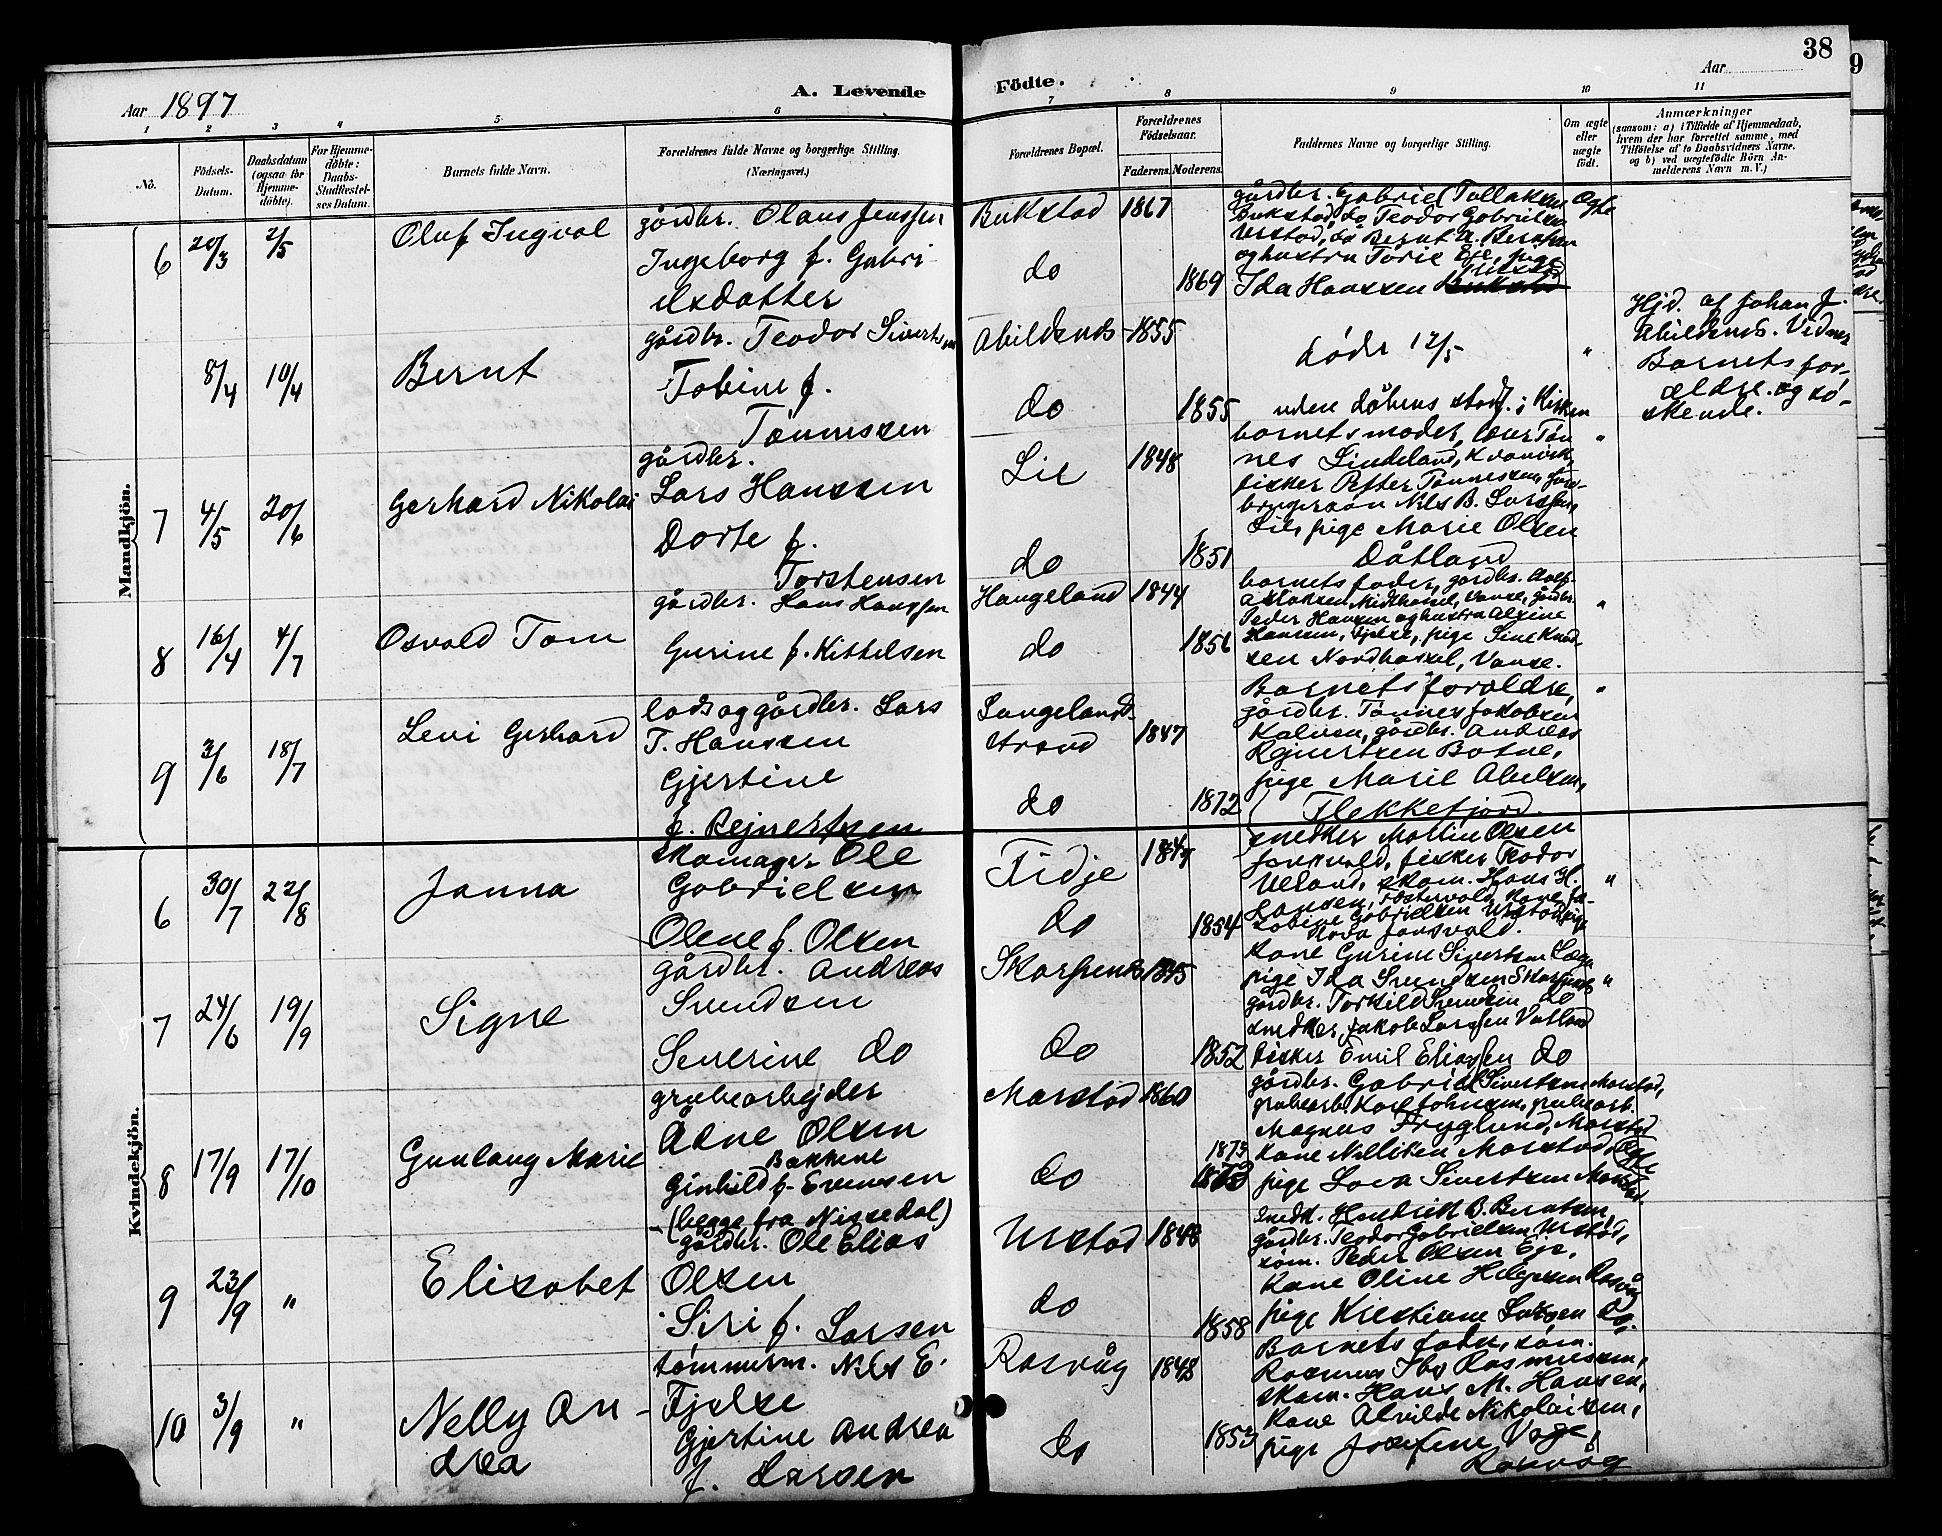 38
9
A. Levende
Födte.
Aar 1897
Aar
1 2 3 4 5 6 7 8 9 10 11
No.
Födsels-
Datum.
Daabsdatum
(ogsaa for
Hjemme-
döbte).
For Hjemme-
döbte:
Daabs-
Stadfæstel-
ses Datum.
Barnets fulde Navn.
Forældrenes fulde Navne og borgerlige Stilling.
(Næringsvei.)
Forældrenes Bopæl.
Forældrenes
Födselsaar.
Faderens. Moderens.
Faddernes Navne og borgerlige Stilling.
Om ægte
eller
uægte
födt.
Anmærkninger
(saasom: a) i Tilfælde af Hjemmedaab,
hvem der har forrettet samme, med
Tilföielse af to Daabsvidners Navne,
og b) ved uægtefödte Börn An-
melderens Navn m. V.)
Mandkjön.
6 20/3 2/5 Oluf Ingval
gårdbr. Olaus Jenssen
Ingeborg f. Gabri-
elsdatter
Bukstad 1867
do 1869
gårdbr. Gabriel Tollaksen
Bukstad, do Teodor Gabrielsen
Urstad, do Bernt A. Berntsen
og hustru Torie Eje, pige
Ida Hanssen Urstad
Ægte
8/4 10/4 Bernt
gårdbr. Teodor Sivertsen
Tobine f.
Tønnessen
Abildsnes 1855
do 1855
døde 12/5
uden dåbens stadf. i Kirken
"
Hjd. af Johan J.
Abildsnes. Vidner
Barnets for-
ældre og sø-
skende.
7 4/5 20/6 Gerhard Nikolai
gårdbr.
Lars Hanssen
Dorte f.
Torstensen
Lie 1848
do 1851
barnets moder, lærer Tøn-
nes Lindeland, Kvanvik,
fisker Petter Tønnessen, gård-
brugersøn Nils B. Larssen,
Lie, pige Marie Olsen
Dåtland
"
8 16/4 4/7 Osvald Tom
gårdbr. Hans Hanssen
Gurine f. Kittelsen
Haugeland 1844
do 1856
barnets fader, gårdbr. Adolf
Aslaksen Midthassel, Vanse, gårdbr.
Peder Hansen og hustru Alxine
Hansen, Fjelse, pige Sine Knud-
sen Nordhassel, Vanse.
"
9 3/6 18/7 Levi Gerhard
lods og gårdbr. Lars
T. Hanssen
Gjertine
f. Rejnertsen
Langeland-
strand 1847
do 1872
Barnets forældre,
gårdbr. Tønnes Jakobsen
Kalven, gårdbr. Andreas
Rejnertsen Botne,
pige Marie Abelsen,
Flekkefjord.
"
Kvindekjön.
6 30/7 22/8 Janna
skomager Ole
Gabrielsen
Olene f. Olsen
Fidje 1847
do 1854
snedker Mattin Olsen
Jonsvald, fisker Teodor
Ueland, skom. Hans H.
Lansen, Østervold, Kone Ja-
kobine Gabrielsen Urstad, pige
Kova Jonsvald.
"
7 24/6 19/9 Signe
gårdbr. Andreas
Svendsen
Severine do
Skarpenes 1845
do 1852
Kone Gurine Sivertsen Læga
pige Ida Svendsen Skarpnes
gårdbr. Torkild Svendsen do
snedker, Jakob Larssen Vatland
fisker Emil Eliassen do
"
8 17/9 17/10 Gunlaug Marie
grubearbejder
Ådne Olsen
Bakkene
Ginhild f. Evensen
(begge fra Nissedal)
Marstad 1860
do 1873
gårdbr. Gabriel Sivertsen Marstad,
grubearb. Karl Johnsen, grubearb.
Magnus Fryglund, Marstad
Kone Nelliken Marstad, Ege
pige Lova Sivertsen Marstad.
9 23/9 " Elisabet
gårdbr. Ole Elias
Olsen
Siri f. Larsen
Urstad 1848
do 1858
Snedk. Hendrik B. Berntsen,
gårdbr. Teodor Gabrielsen Urstad,
søm. Peder Olsen Eje,
Kone Oline Helgesen Rasvåg
pige Kristiane Larsen do.
10 3/9 " Nelly An-
drea
tømmerm. Nils E.
Fjelse
Gjertine Andrea
f. Larsen
Rasvåg 1848
do 1853
Barnets fader, søm.
Rasmus Ibs Rasmussen,
skom. Hans M. Hansen,
Kone Alvilde Nikolaisen,
pige Josefine Vage,
Rasvåg